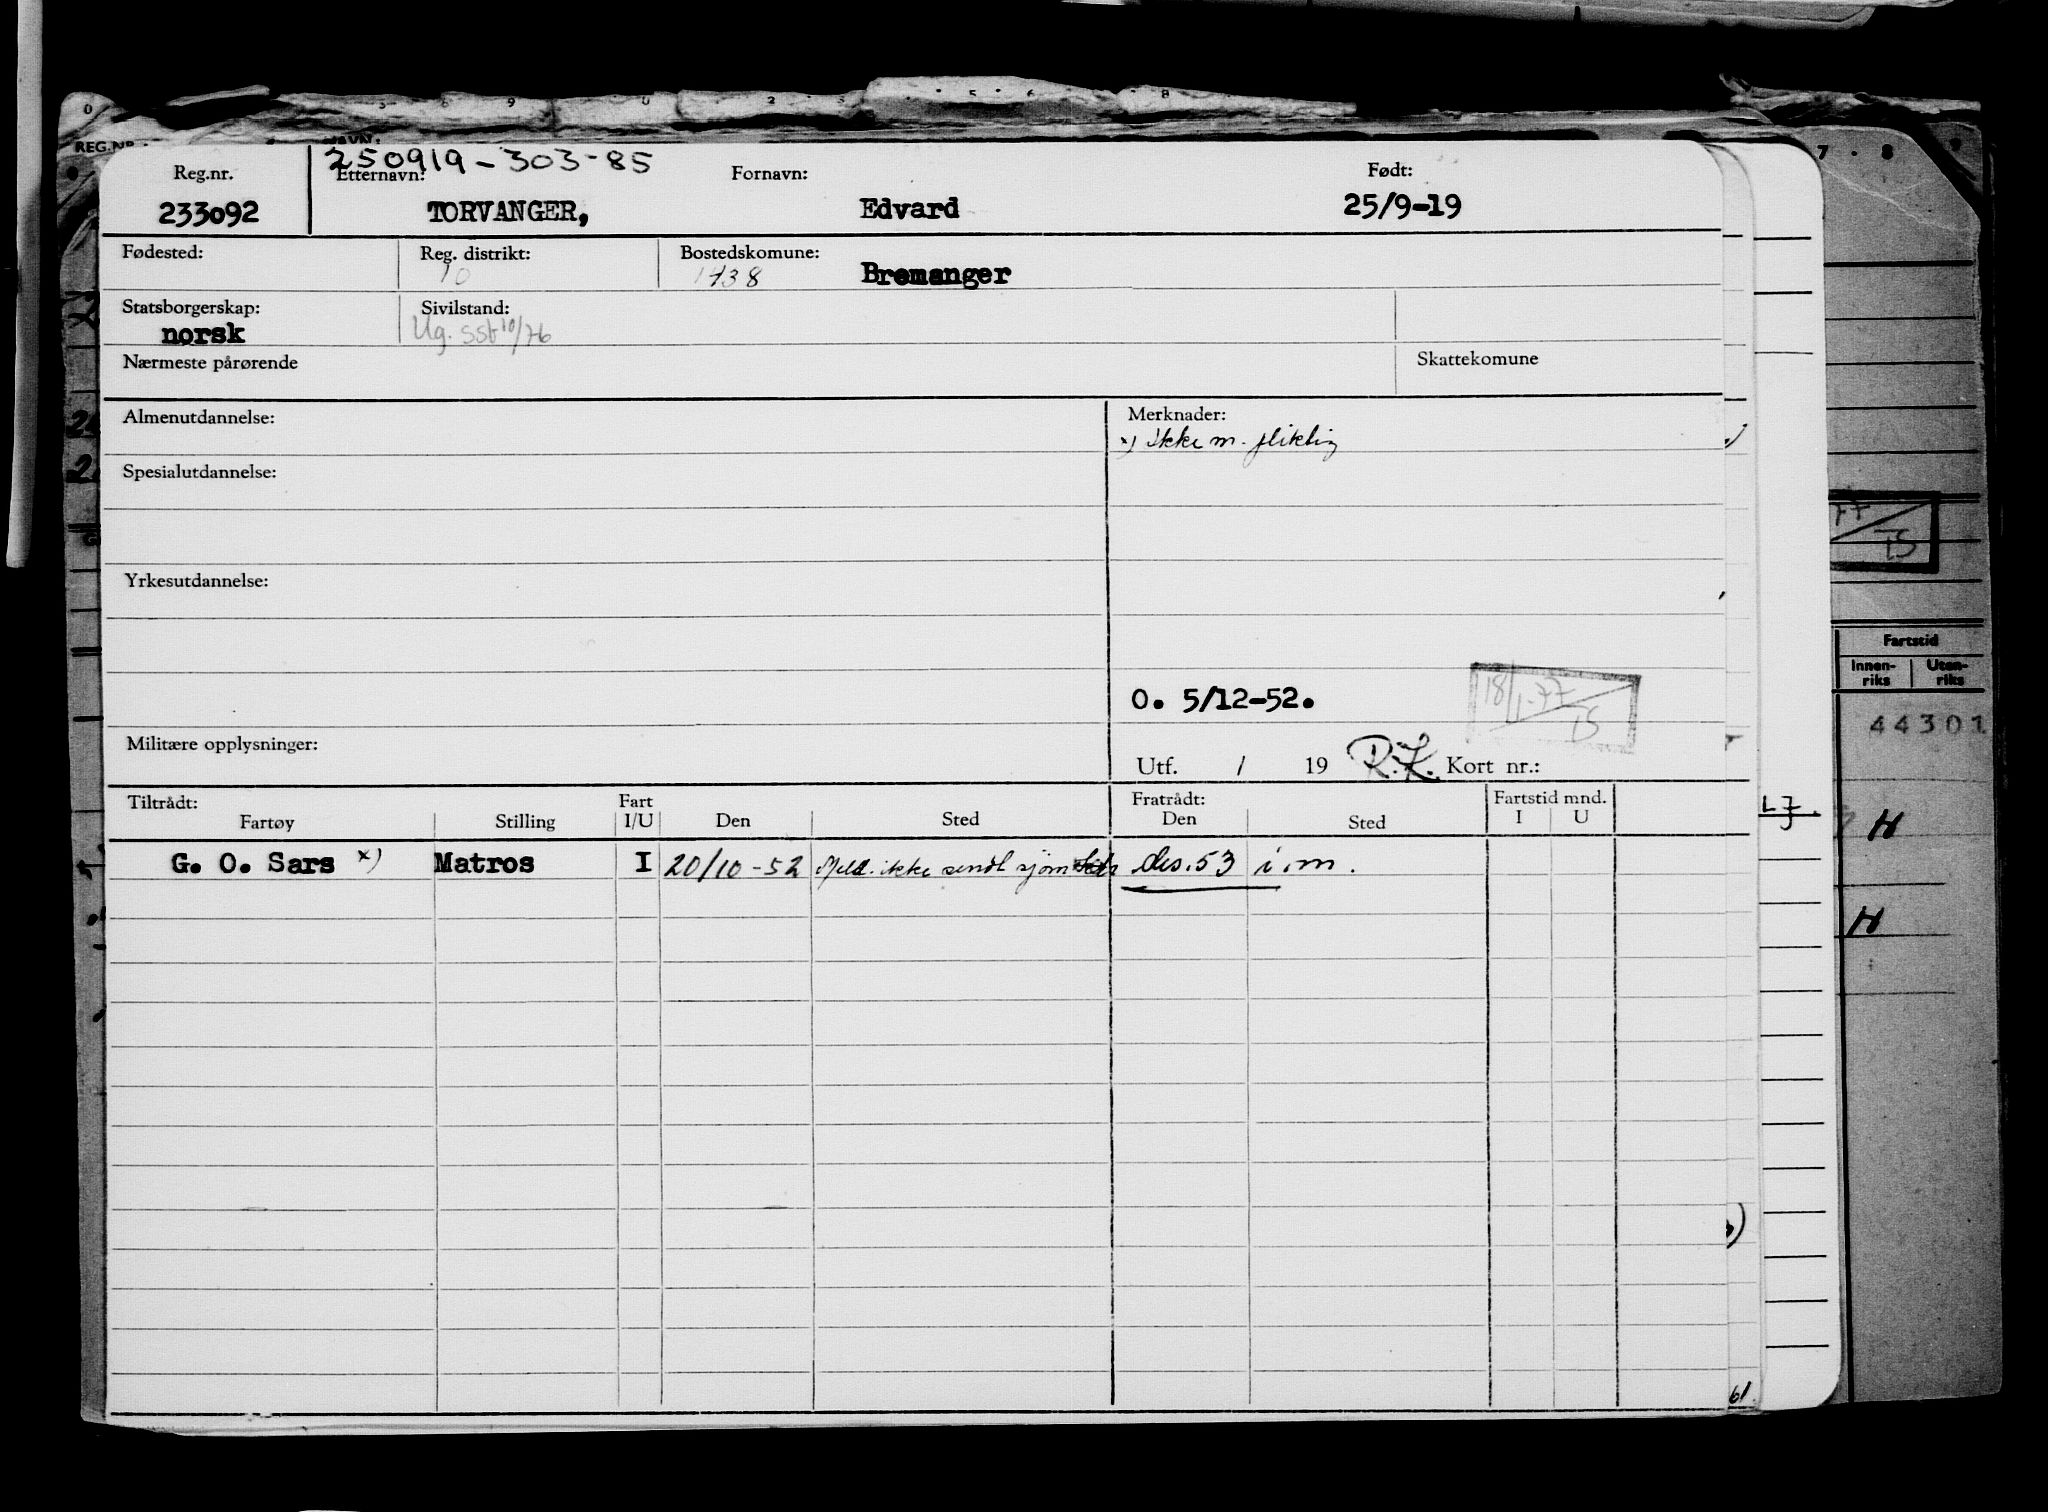 250919-303-85
Reg.nr. Etternavn: Fornavn: Født:
233092 TORVANGER, Edvard 25/9-19
Fødested: Reg. distrikt: Bostedskomune:
10 1438 Bremanger
Statsborgerskap: Sivilstand:
norsk Ug. sst 10/76
Nærmeste pårørende Skattekomune
Almenutdannelse: Merknader:
x) ikke m. pliktig
Spesialutdannelse:
Yrkesutdannelse:
O. 5/12-52. 18/1-77 TS
Militære opplysninger:
Utf. / 19 R.K. Kort nr.:
Tiltrådt: Fart Fratrådt: Fartstid mnd.
Fartøy Stilling I/U Den Sted Den Sted I U
G. O. Sars x) Matros I 20/10-52 Meld. ikke sendt sjøm des. 53 i.m.
REG.NR.
NAVN:
77
TS
Fartstid
Innen-
riks
Uten-
riks
44301
H
H
61.